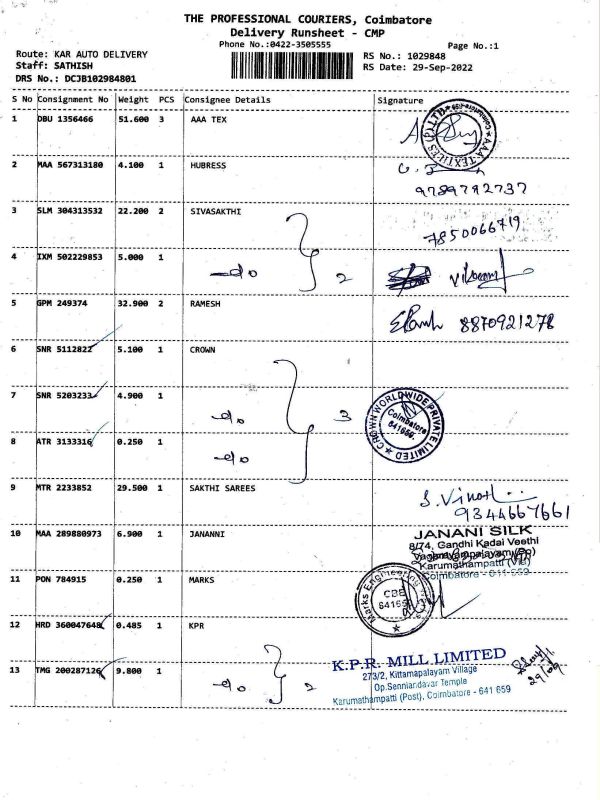 THE PROFESSIONAL COURIERS, Coimbatore
Delivery Runsheet - CMP
Phone No.:0422-3505555
Page No.:1
Route: KAR AUTO DELIVERY
RS No.: 1029848
Staff: SATHISH
RS Date: 29-Sep-2022
DRS No.: DCJB102984801
S No Consignment No Weight PCS Consignee Details Signature
1 DBU 1356466 51.600 3 AAA TEX
AAA TEXTILES (P) LTD Coimbatore-659
2 MAA 567313180 4.100 1 HUBRESS
9789792737
3 SLM 304313532 22.200 2 SIVASAKTHI
7850066719
4 IXM 502229853 5.000 1
-do 2
5 GPM 249374 32.900 2 RAMESH
8870921278
6 SNR 5112822 5.100 1 CROWN
7 SNR 5203233 4.900 1
-do 3
CROWN WORLDWIDE PRIVATE LIMITED
Coimbatore
641659.
8 ATR 3133316 0.250 1
-do
9 MTR 2233852 29.500 1 SAKTHI SAREES
S. Vinoth
9344667661
10 MAA 289880973 6.900 1 JANANNI
JANANI SILK
8/74, Gandhi Kadai Veethi
Karumathampatti (Via)
Coimbatore - 641 659
11 PON 784915 0.250 1 MARKS
Marks Engineering
CBE
641659
12 HRD 360047648 0.485 1 KPR
13 TMG 200287126 9.800 1
-do 2
K.P.R. MILL LIMITED
273/2, Kittamapalayam Village
Op.Senniandavar Temple
Karumathampatti (Post), Coimbatore - 641 659
29/09